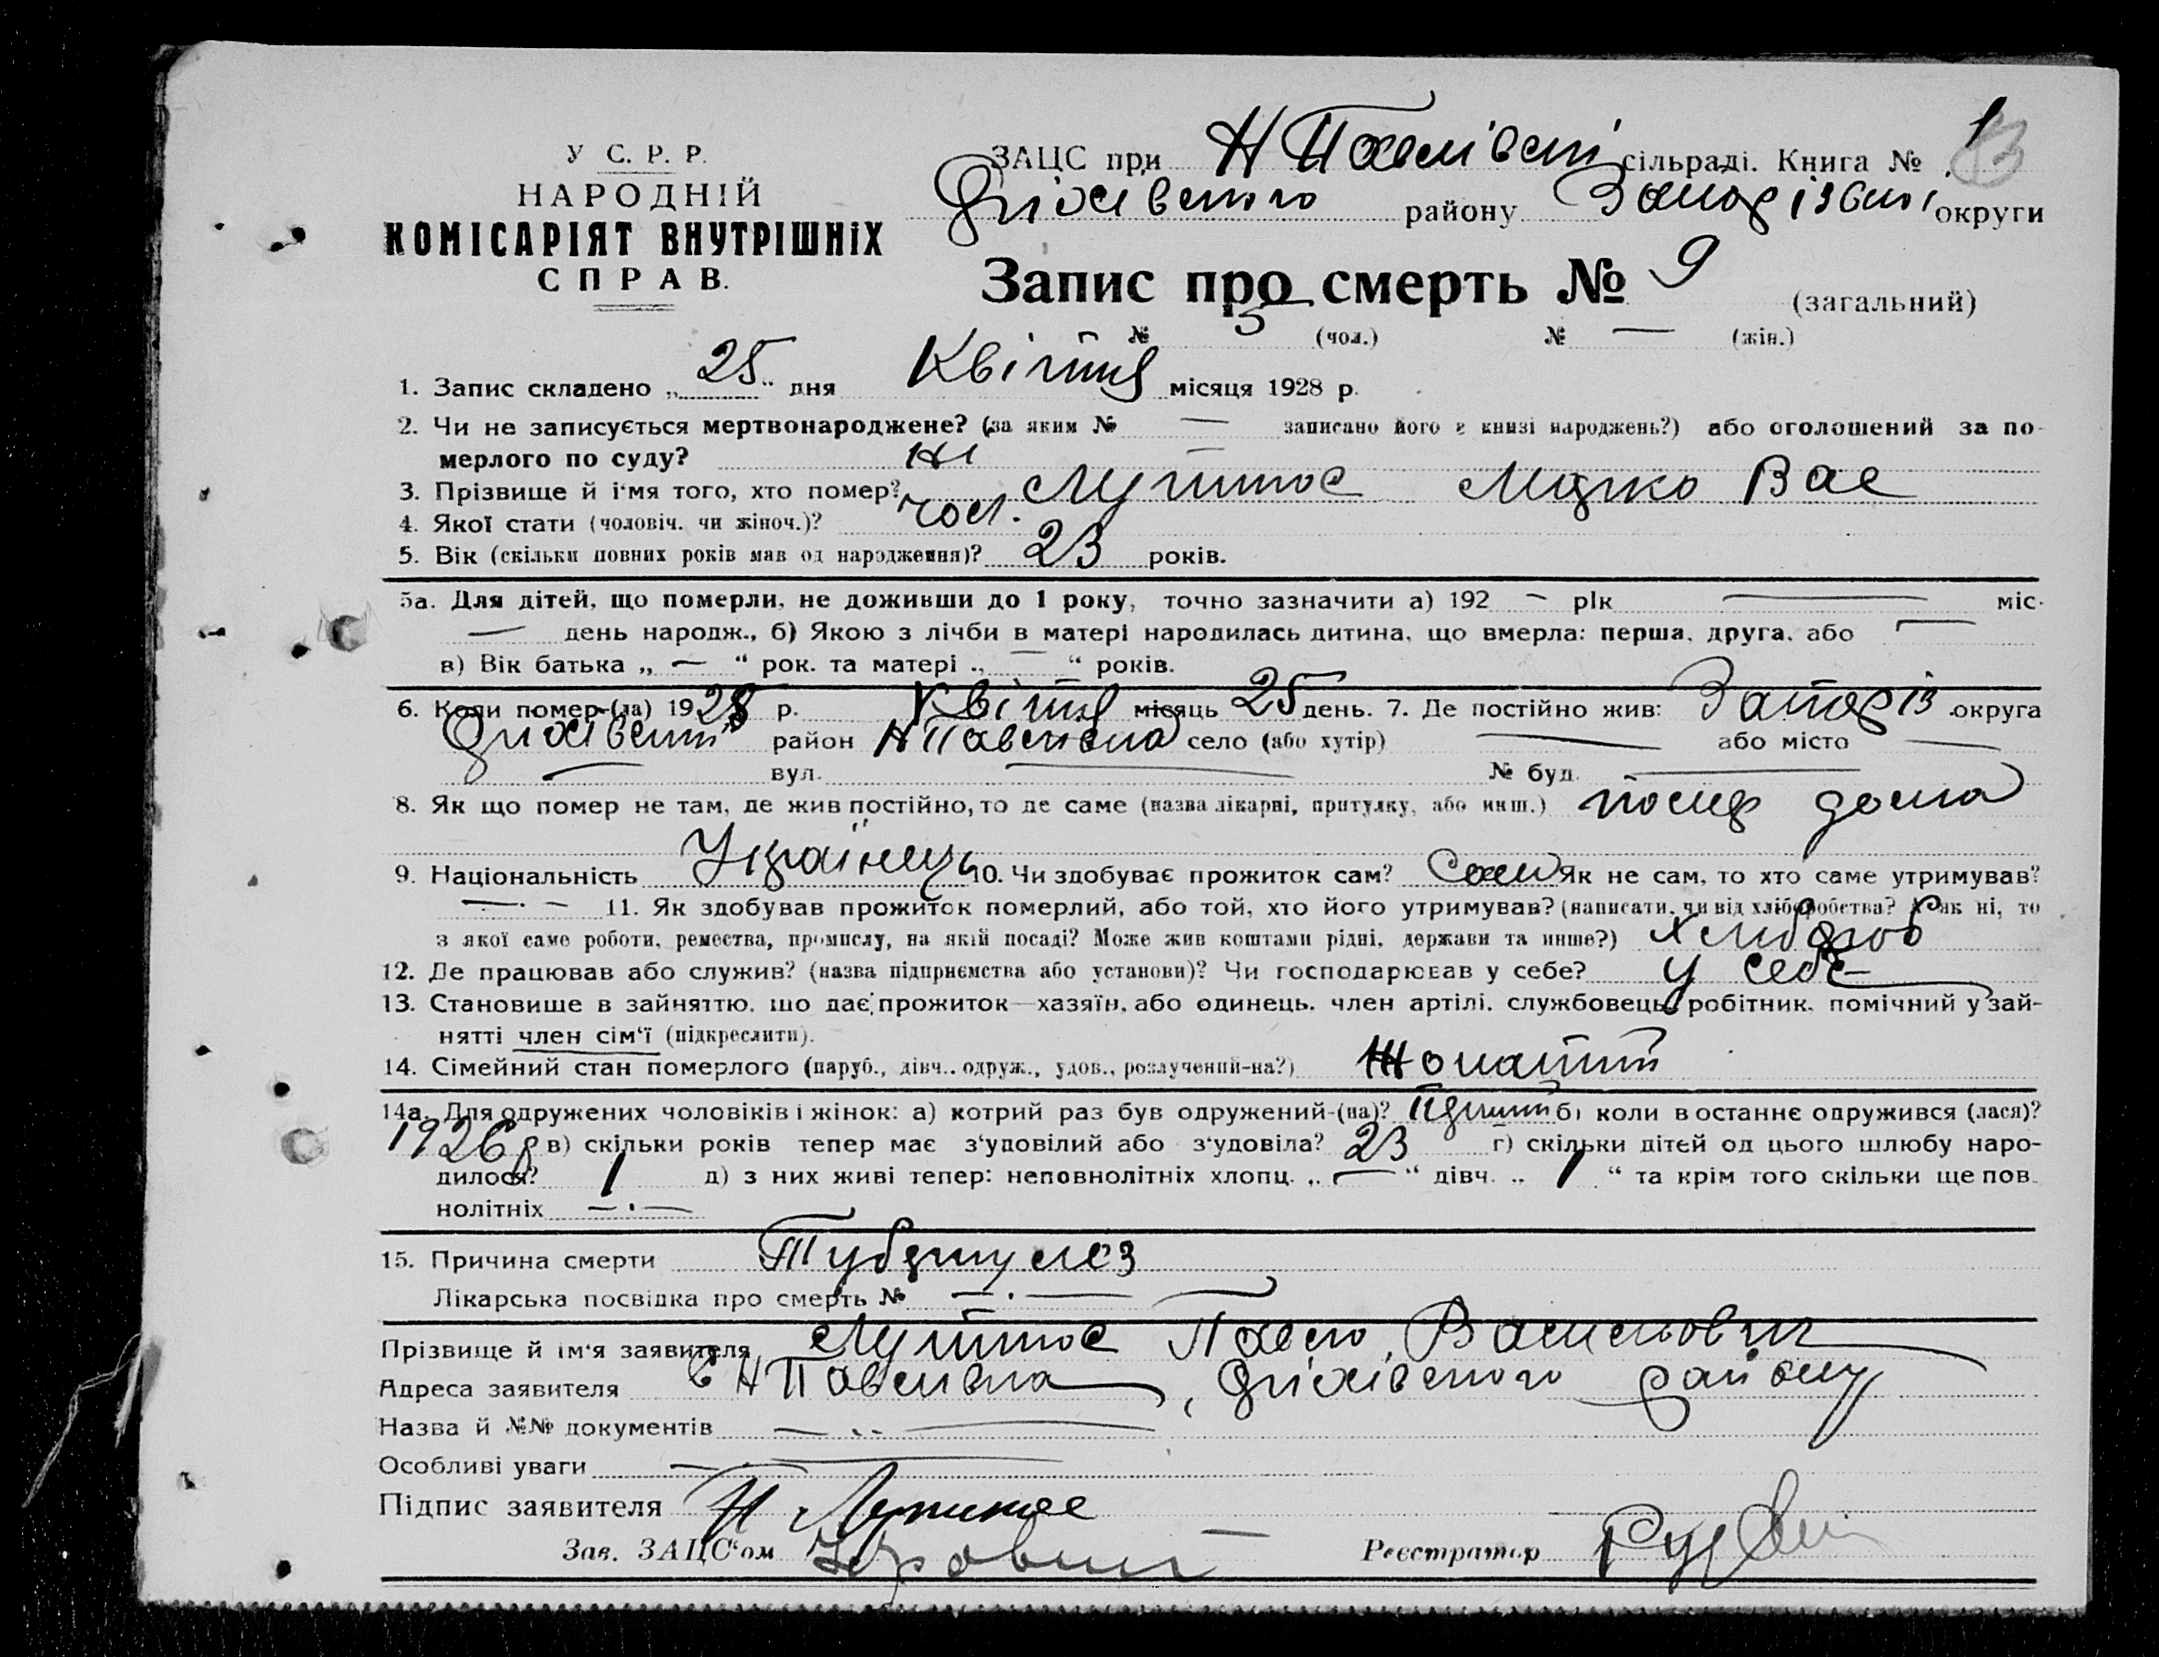 У С. Р. Р.
НАРОДНІЙ
КОМІСАРІЯТ ВНУТРІШНІХ
СПРАВ.
ЗАЦС при Н Павлівскі сільраді. Книга № 1
13
Оріхівского району Запорізької округи
Запис про смерть № 9 (загальний)
№ 5 (чол.) № — (жін.)
1. Запис складено „25“ дня Квітня місяця 1928 р.
2. Чи не записується мертвонароджене? (за яким № — записано його в книзі народжень?) або оголошений за по-
мерлого по суду? Ні
3. Прізвище й ім'я того, хто помер? Марко Вас
4. Якої стати (чоловіч. чи жіноч.)? чол.
5. Вік (скільки повних років мав од народження)? 23 років.
5а. Для дітей, що померли, не доживши до 1 року, точно зазначити а) 192 — рік — міс.
— день народж., б) Якою з лічби в матері народилась дитина, що вмерла: перша, друга, або —
в) Вік батька „ — “ рок. та матері „ — “ років.
6. Коли помер-(ла) 1928 р. Квітня місяць 25 день. 7. Де постійно жив: Запоріз округа
Оріхівский район Н Павлівка село (або хутір) — або місто —
— вул. — № буд. —
8. Як що помер не там, де жив постійно, то де саме (назва лікарні, притулку, або инш.) помер дома
9. Національність Українець 10. Чи здобуває прожиток сам? Сам Як не сам, то хто саме утримував?
— . — 11. Як здобував прожиток померлий, або той, хто його утримував? (написати, чи від хліборобства? А як ні, то
з якої саме роботи, ремества, промислу, на якій посаді? Може жив коштами рідні, держави та инше?) Хлібороб
12. Де працював або служив? (назва підприємства або установи)? Чи господарював у себе? у себе
13. Становище в зайняттю, що дає прожиток—хазяїн, або одинець, член артілі, службовець, робітник, помічний у зай-
нятті член сім'ї (підкреслити).
14. Сімейний стан померлого (паруб., дівч., одруж., удов., розлучений-на?) Жонатий
14а. Для одружених чоловіків і жінок: а) котрий раз був одружений-(на)? б) коли востаннє одружився (лася)?
1926 р в) скільки років тепер має з'удовілий або з'удовіла? 23 г) скільки дітей од цього шлюбу наро-
дилося? 1 д) з них живі тепер: неповнолітніх хлопц. „ — “ дівч. „ 1 “ та крім того скільки ще пов-
нолітніх — . —
15. Причина смерти Туберкулез
Лікарська посвідка про смерть № — . —
Прізвище й ім'я заявителя Павло Васильович
Адреса заявителя С Н Павлівка, Оріхівского району
Назва й №№ документів — .. —
Особливі уваги — . —
Підпис заявителя
Зав. ЗАЦС'ом
Реєстратор